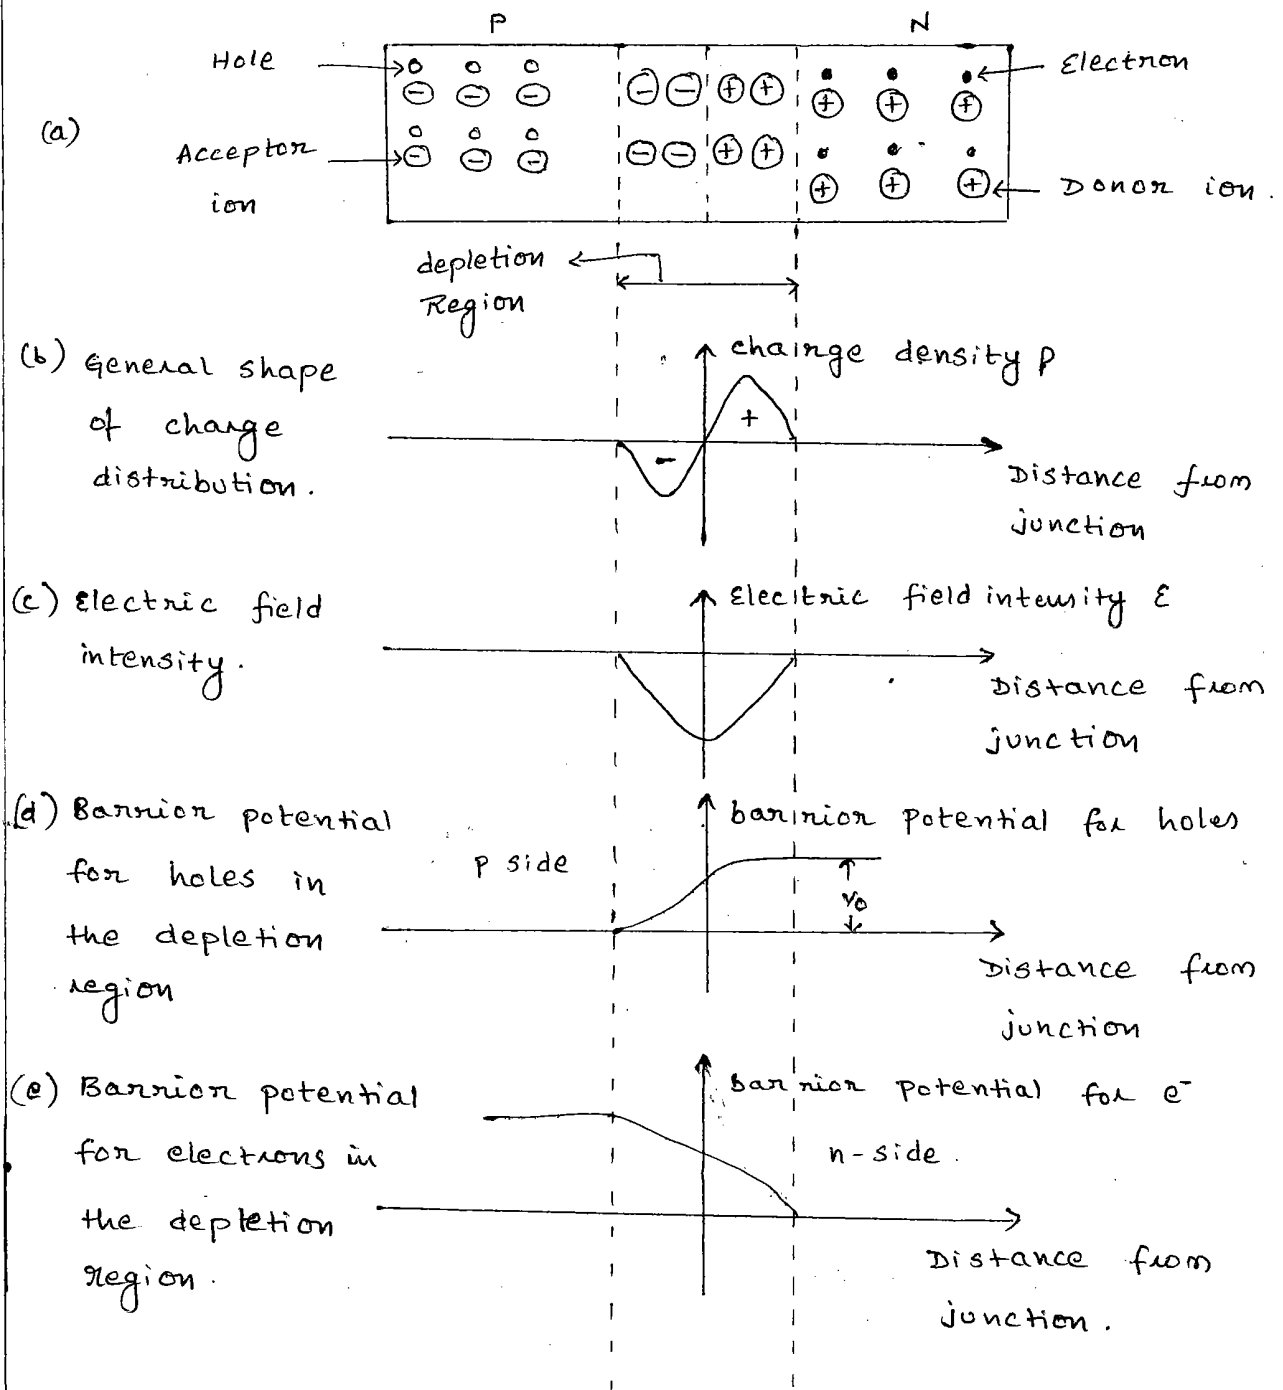 P
N
Hole
Electron
(a)
Acceptor
ion
Donor ion.
depletion
Region
(b) General shape
of charge
distribution.
chainge density ρ
+
-
Distance from
junction
(c) Electric field
intensity.
Elecitric field intensity ε
Distance from
junction
(d) Barrior potential
for holes in
the depletion
region
P side
barrior potential for holes
V0
Distance from
junction
(e) Barrior potential
for electrons in
the depletion
region.
Barrior potential for e-
n-side.
Distance from
junction.